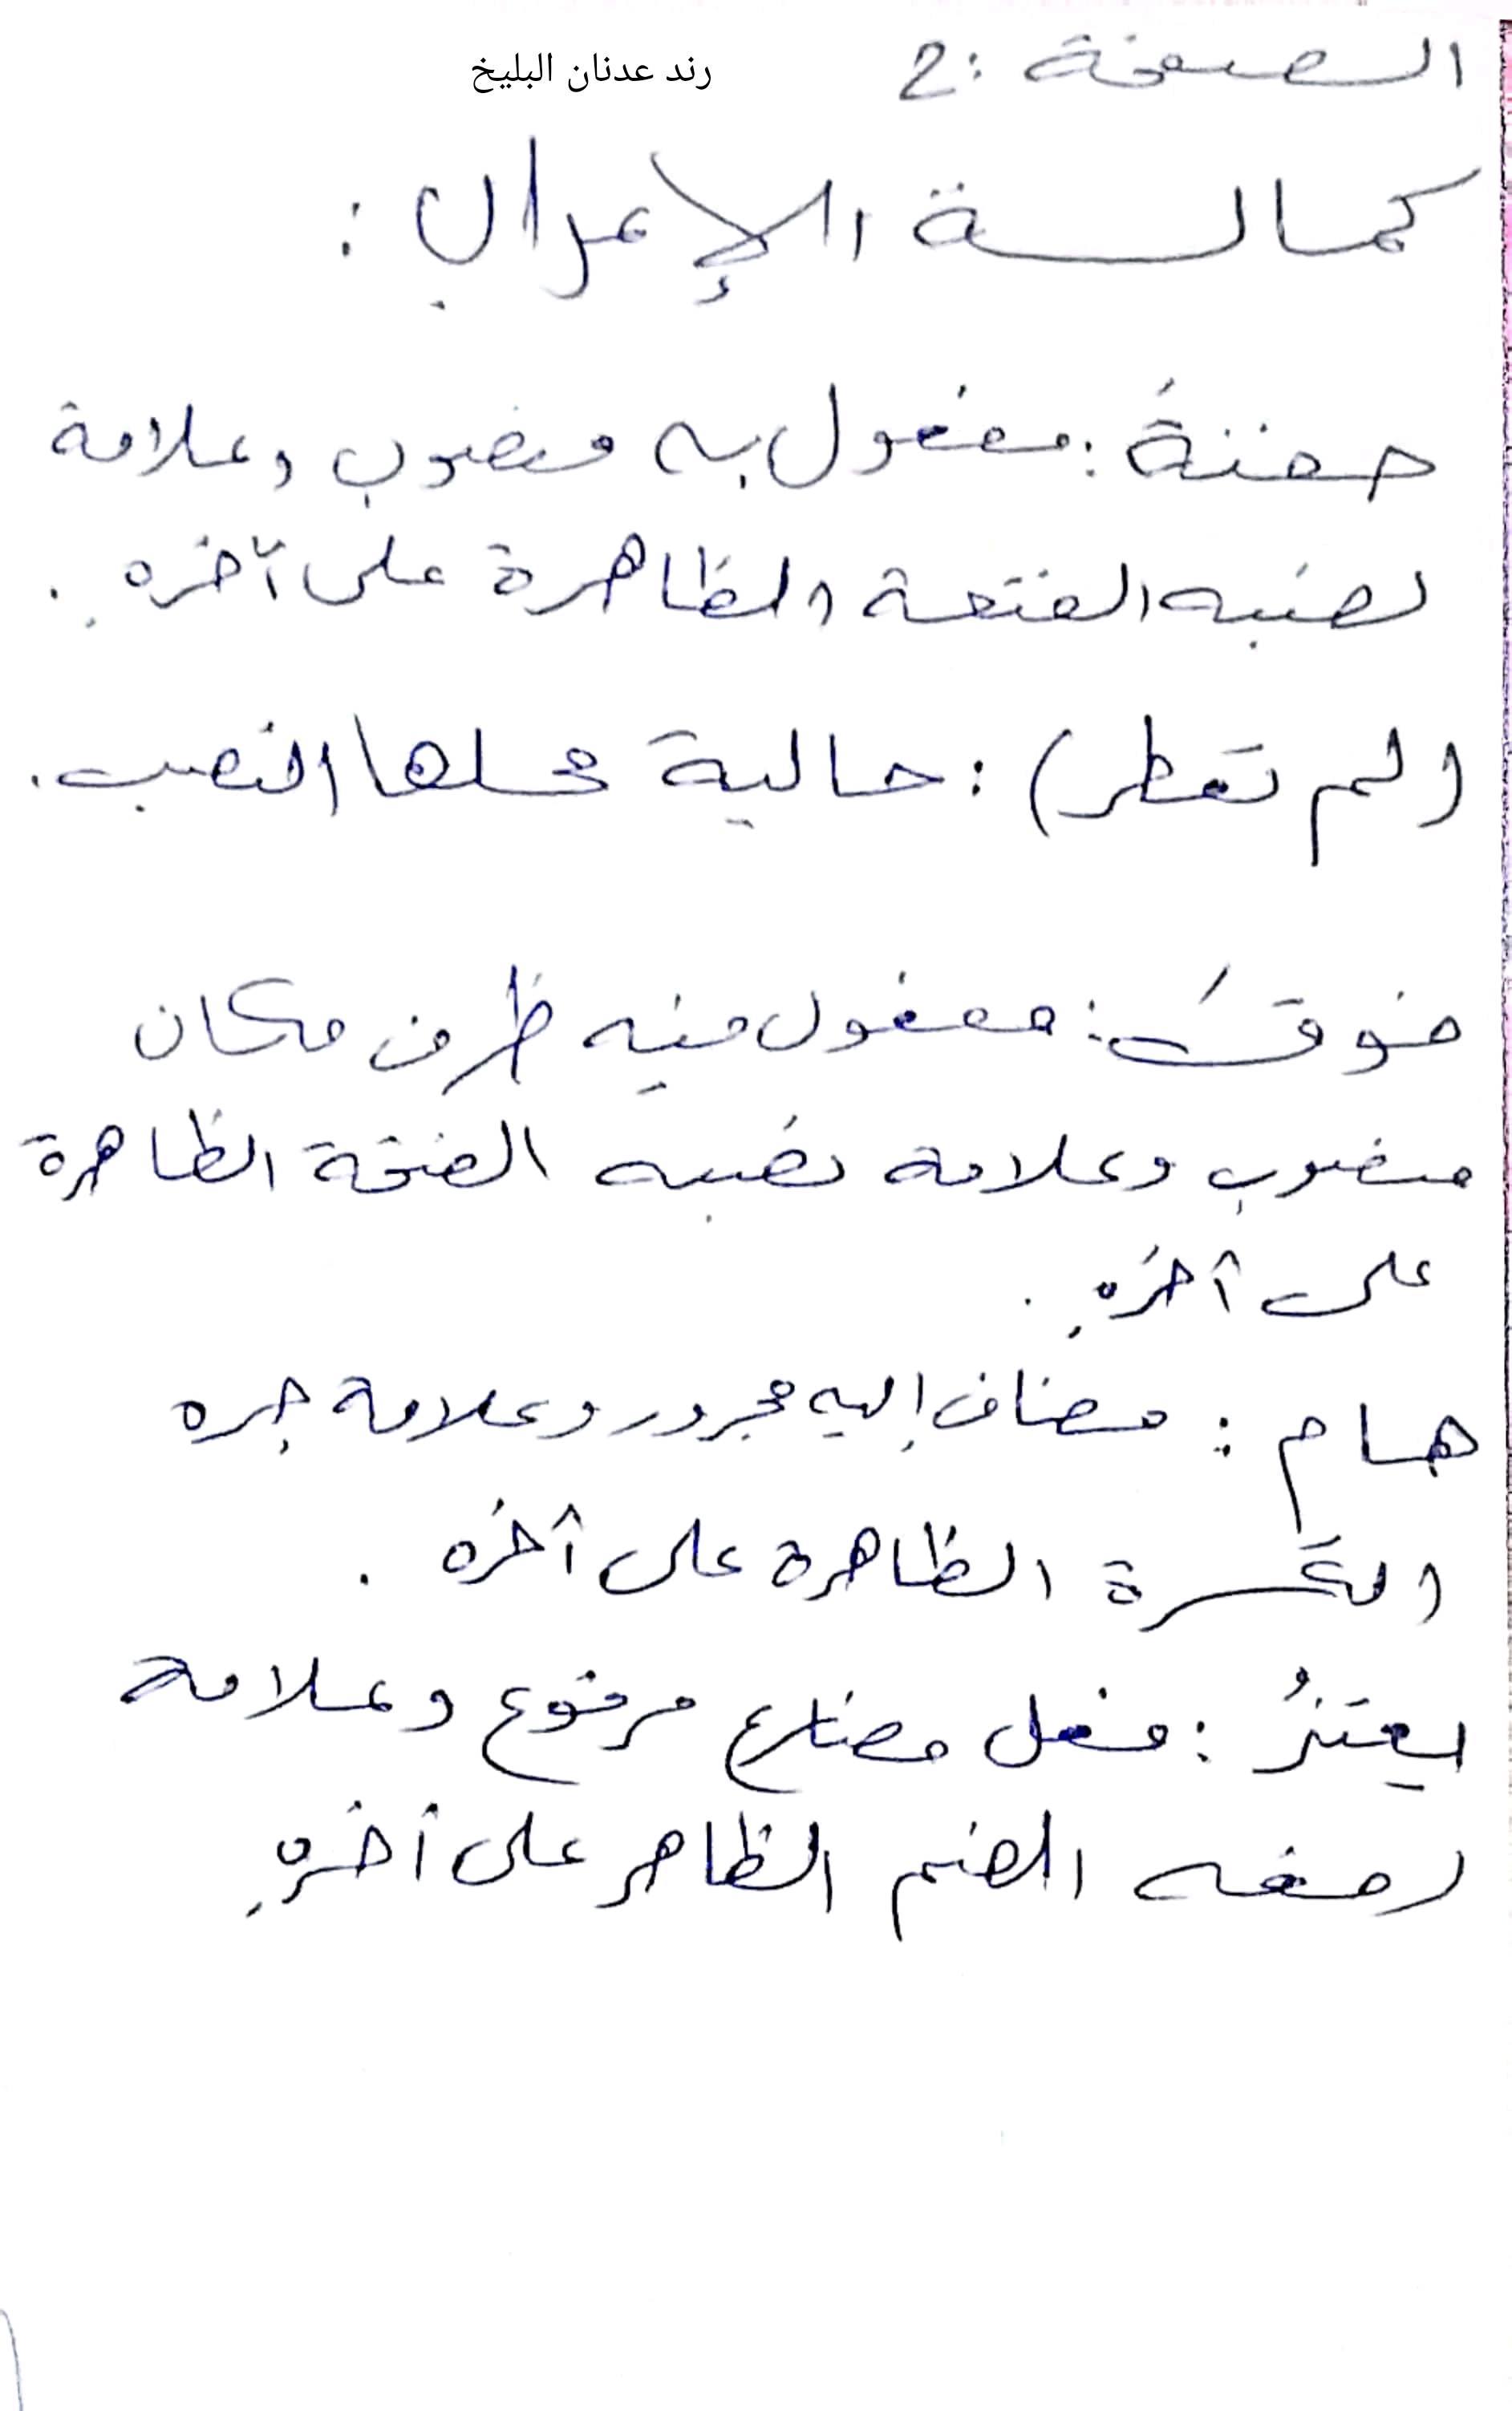 الصفحة :2 رند عدنان البليخ
كمالسة الإعراب :
حفنةً : مفعول به منصوب وعلامة
نصبه الفتحة الظاهرة على آخره .
(لم تعطر) : حالية محلها النصب .
فوقَ : مفعول فيه ظرف مكان
منصوب وعلامة نصبه الفتحة الظاهرة
على آخرهِ .
هام : مضاف إليه مجرور وعلامة جره
الكسرة الظاهرة على آخره .
يعتزُ : فعل مضارع مرفوع وعلامة
رفعه الضم الظاهر على آخرهِ